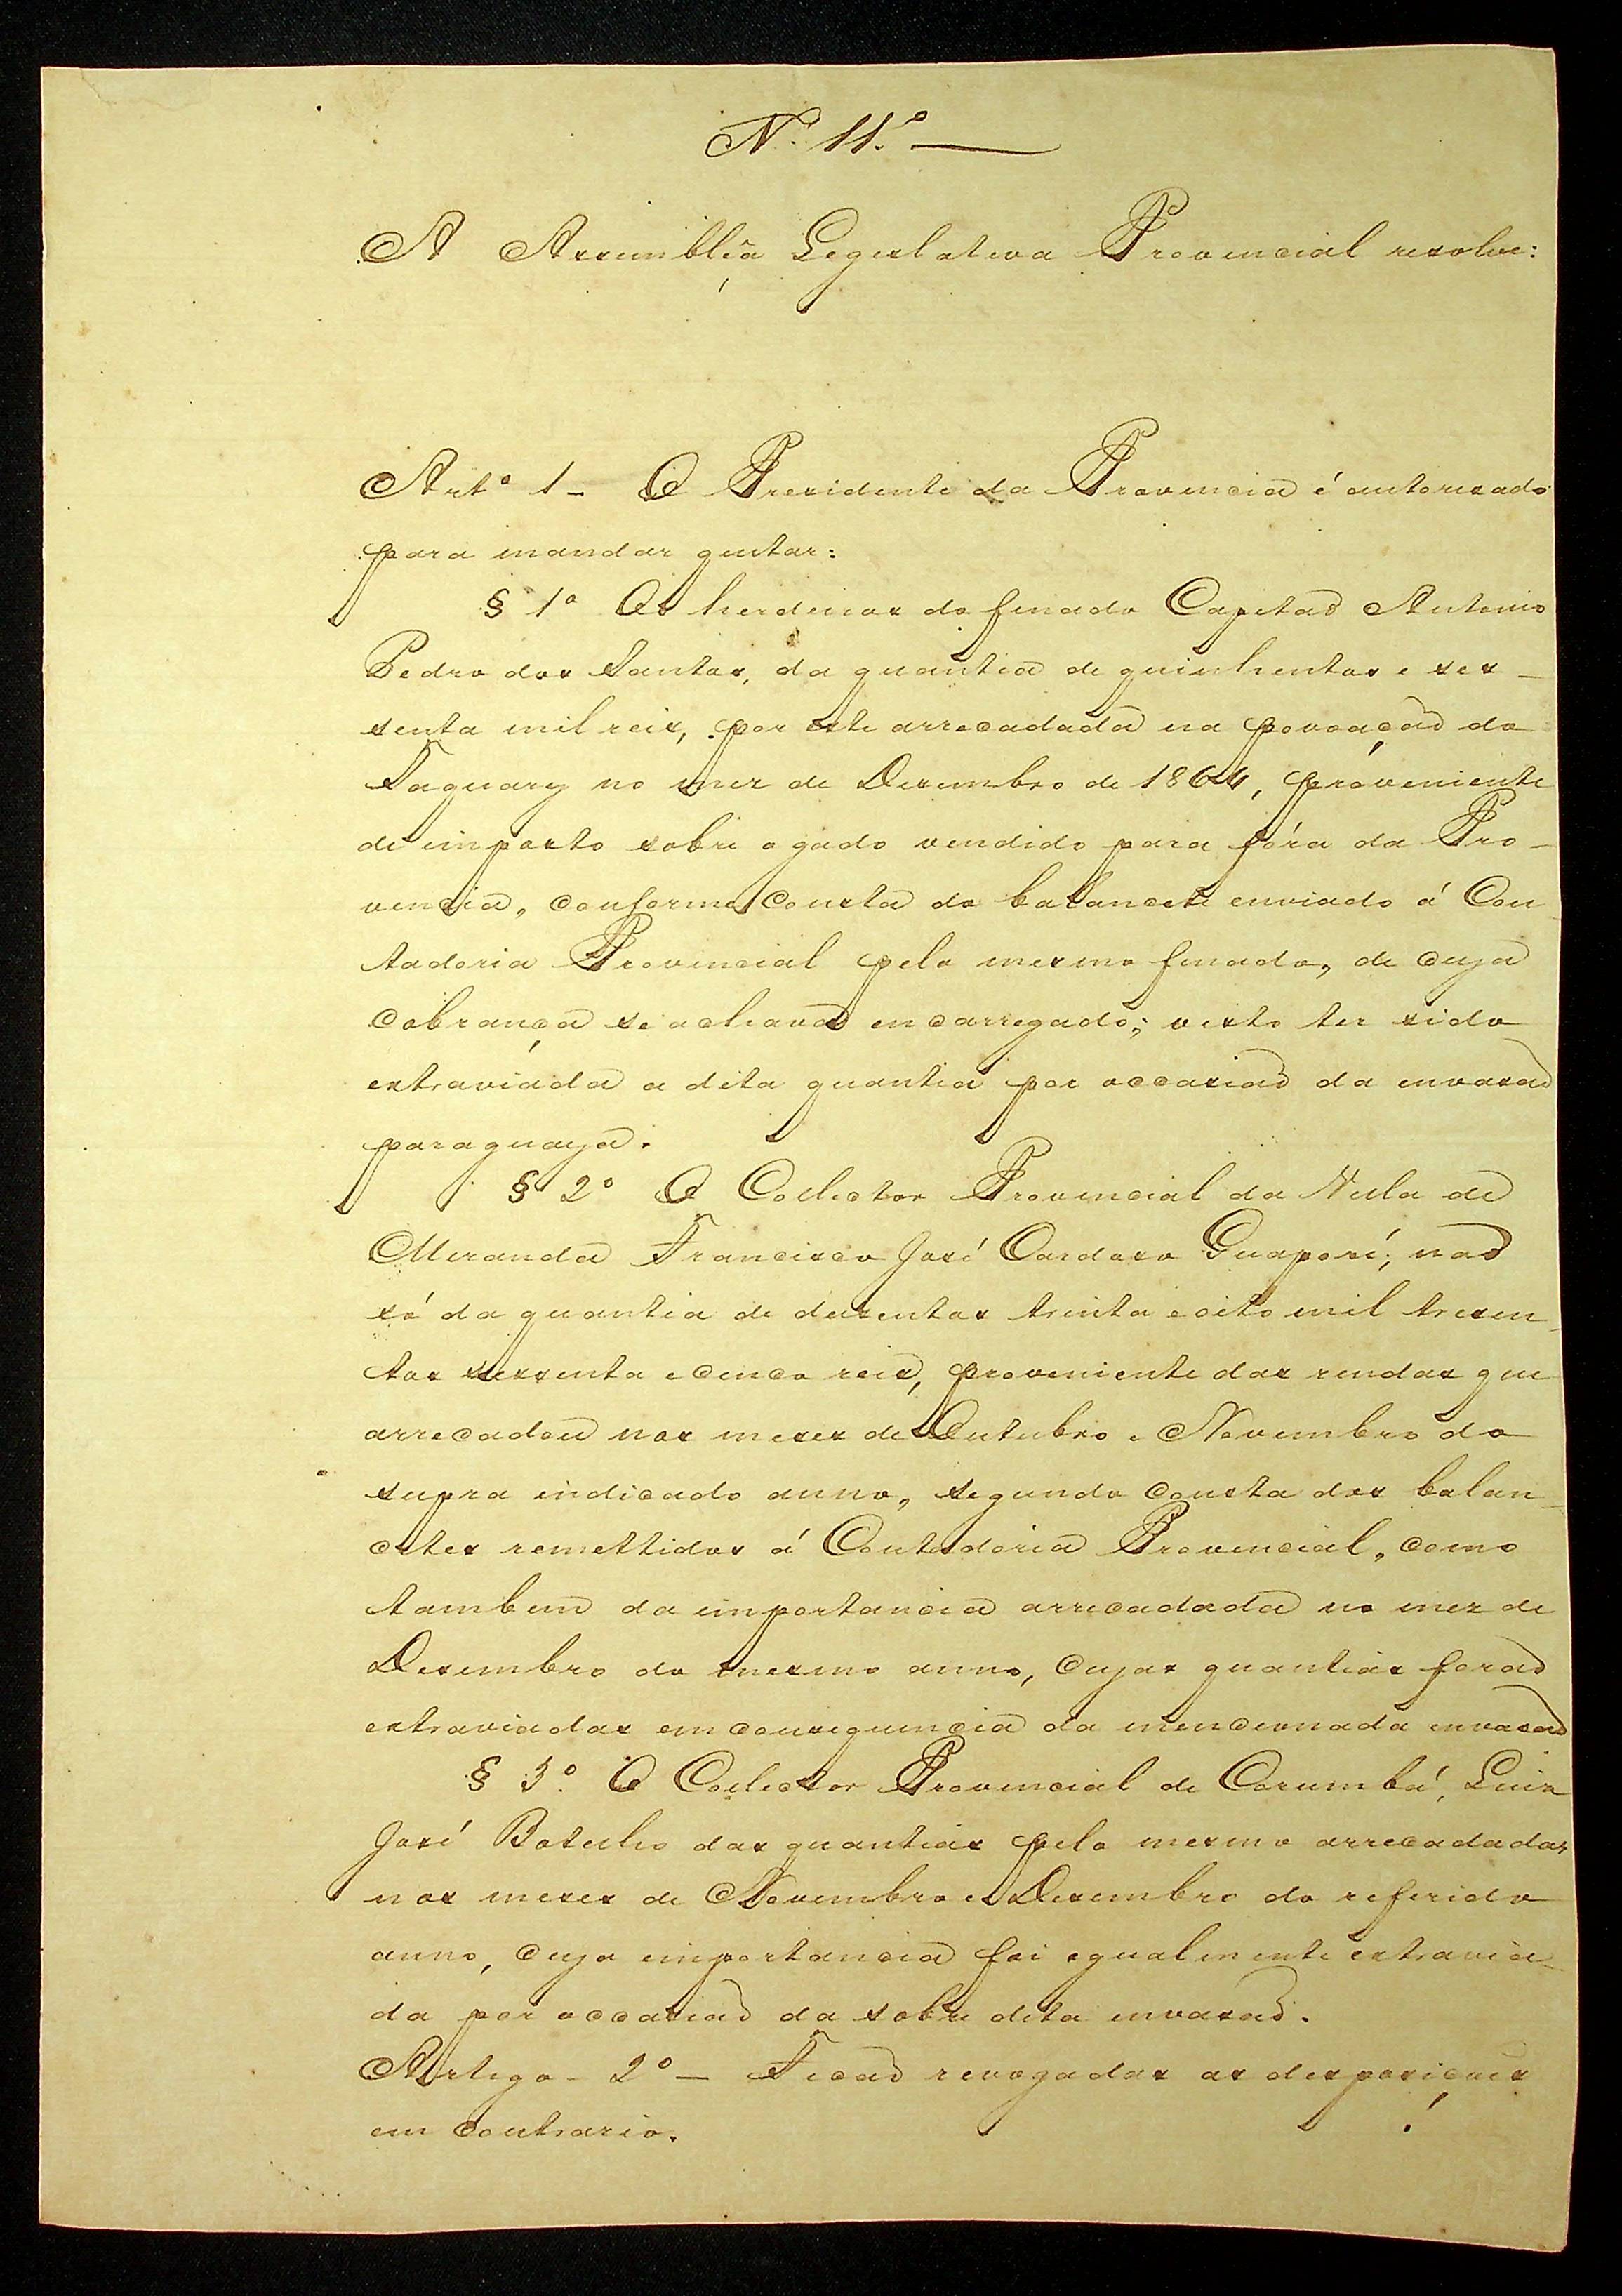 Nº 11.º —
A Assembléa Legislativa Provincial resolve:
Artº 1 – O Presidente da Provincia é autorisado
para mandar quitar:
§ 1º Os herdeiros do finado Capitaõ Antonio
Pedro dos Santos, da quantia de quinhentos e ses-
senta mil reis, por este arrecadada na povoaçaõ do
Taquary no mez de Desembro de 1864, proveniente
de imposto sobre o gado vendido para fóra da Pro-
vincia, conforme consta do balancete enviado á Con-
tadoria Provincial pelo mesmo finado, de cuja
cobrança se achava encarregado; visto ter sido
extraviada a dita quantia por occasiaõ da invasaõ
paraguaya.
§ 2º O Collector Provincial da Villa de
Miranda Francisco José Cardoso Guaporé; naõ
só da quantia de dusentos trinta e oito mil tresen-
tos sessenta e cinco reis, proveniente das rendas que
arrecadou nos meses de Outubro e Novembro do
supra indicado anno, segundo consta dos balan-
cetes remettidos á Contadoria Provincial, como
tambem da importancia arrecadada no mez de
Desembro do mesmo anno, cujas quantias foraõ
extraviadas em consequencia da mencionada invasaõ
§ 3º. O Collector Provincial de Corumbá, Luiz
José Botelho das quantias pelo mesmo arrecadadas
nos meses de Novembro e Desembro do referido
anno, cuja importancia foi egualmente extravia-
da por occasiaõ da sobre dita invasaõ.
Artigo – 2º – Ficaõ revogadas as desposições
em contrario.